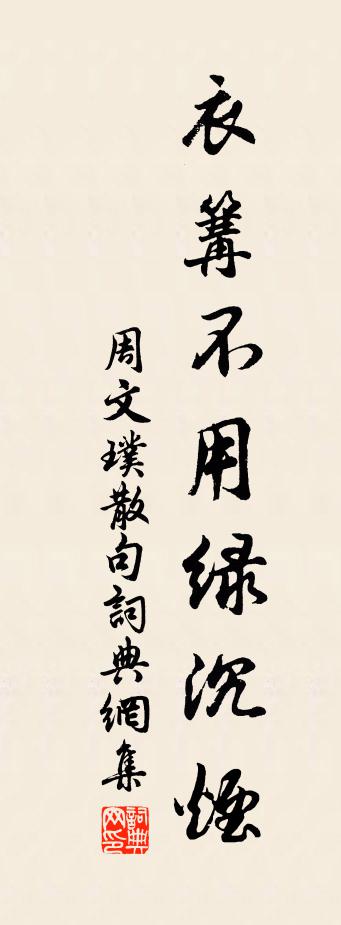 衣篝不用緑沉煙
周文璞散句詞典網集
詞典
网印